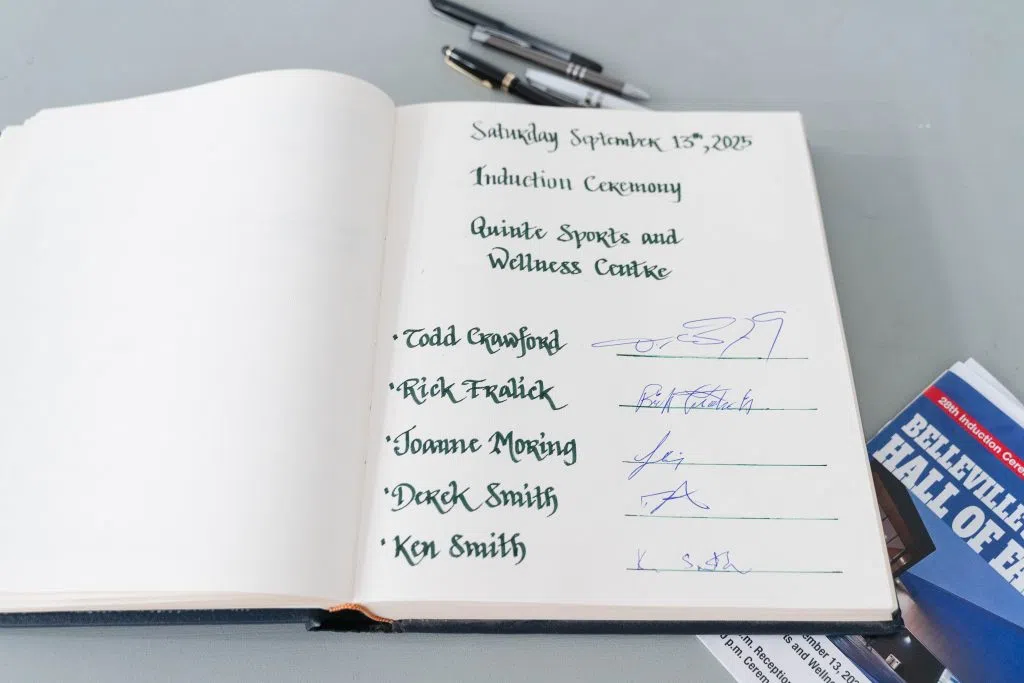 Saturday September 13th, 2025
Induction Ceremony
Quinte Sports and
Wellness Centre
· Todd Crawford
· Rick Fralick
· Joanne Moring
· Derek Smith
· Ken Smith
K Smith
28th Induction Cere
BELLEVILLE
HALL OF FA
ember 13, 202
ts and Welln
.m. Reception
p.m. Cerem